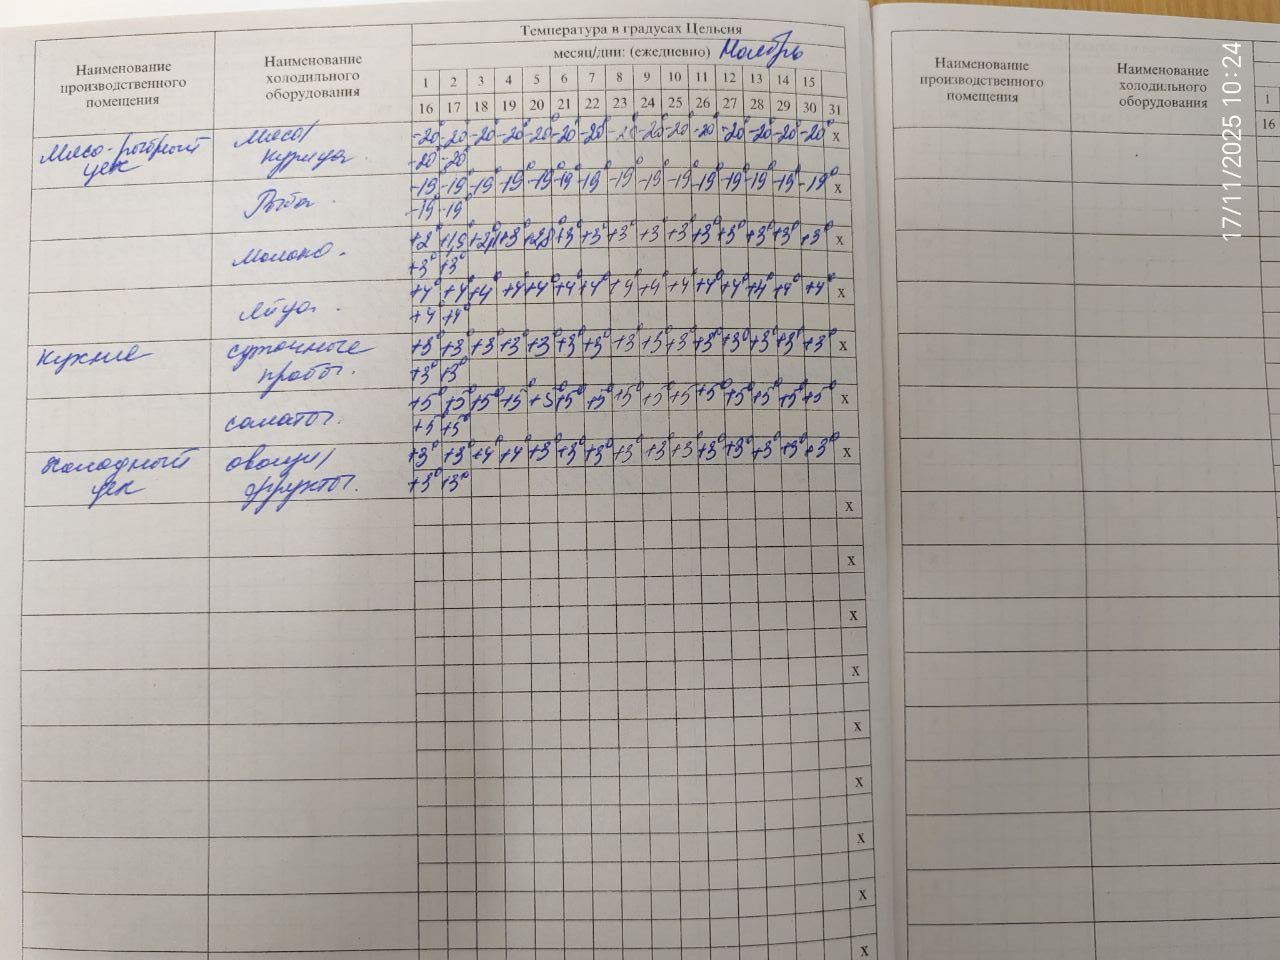 Температура в градусах Цельсия
Наименование производственного помещения
Наименование холодильного оборудования
месяц/дни: (ежедневно) Ноябрь
1 2 3 4 5 6 7 8 9 10 11 12 13 14 15
16 17 18 19 20 21 22 23 24 25 26 27 28 29 30 31
Мясо-рыбный цех
Мясо/курица
-20° -20° -20° -20° -20° -20° -20° -20 -20° -20° -20° -20° -20° -20° -20° х
-20° -20°
Рыба.
-19° -19° -19° -19° -19° -19° -19° -19° -19° -19° -19° -19° -19° -19° -19° х
-19° -19°
Молоко.
+3° +3° +3° +3° +3° +3° +3° +3° +3° +3° х
+3° +3°
Яйца.
+4° +4° +4° +4° +4° +4° +4° +4 +4° +4° +4° +4° +4° +4° +4° х
+4° +4°
Кухня
суточные пробы.
+3° +3° +3° +3° +3° +3° +3° +3 +3° +3° +3° +3° +3° +3° +3° х
+3° +3°
салаты.
+5° +5° +5° +5° +5° +5° +5° +5° +5° +5° +5° +5° +5° +5° +5° х
+5° +5°
Холодный цех
овощи/фрукты.
+3° +3° +4° +4° +3° +3° +3° +3° +3° +3° +3° +3° +3° +3° +3° х
+3° +3°
х
х
х
х
х
х
х
х
х
Наименование производственного помещения
Наименование холодильного оборудования
1
16
17/11/2025 10:24